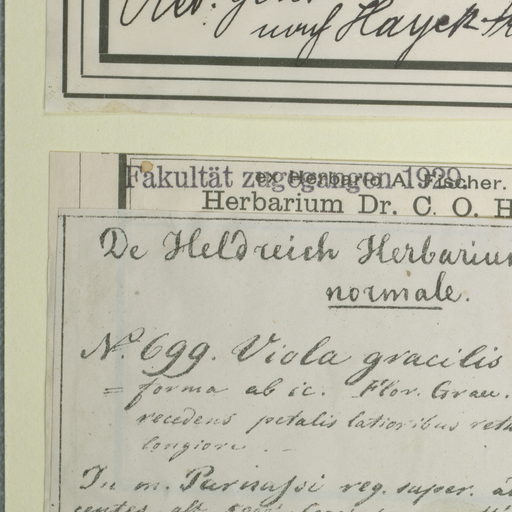 nach Hayek
Fakultät zugegangen 1929.
ex Herbario A. Fischer.
Herbarium Dr. C. O. H
De Heldreich Herbarium
normale.
No. 699. Viola gracilis
= forma ab ic. Flor. Graec.
recedens petalis latioribus
longiore
In m. Parnassi reg. super.